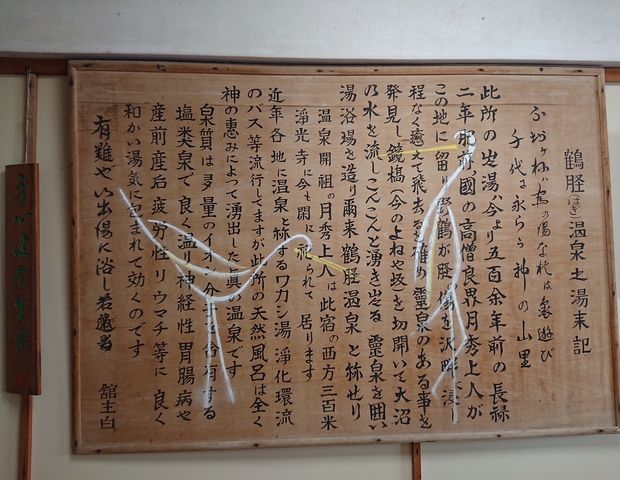 鶴脛(はぎ)温泉之由来記
千代は永らう神の山里
此所の出湯は今より五百余年前の長禄
二年肥前国の高僧良界月秀上人が
この地に留り野鶴が脛の傷を沢畔に浸し
程なく癒えて飛去るを確め霊泉のある事を
発見し鏡橋(今のよねや坂を切開いて大沼
の水を流しこんこんと湧き出る霊泉を囲い
湯浴場を造り爾来鶴脛温泉と称せり
温泉開祖の月秀上人は此宿の西方三百米
浄光寺に今も閑に祀られて居ります
近年各地に温泉と称するワカシ湯浄化環流
のバス等流行してますが此所の天然風呂は全く
神の恵みによって湧出した真の温泉です
泉質は多量のイオン分子を含有する
塩類泉で良く温り神経性胃腸病や
産前産后疲労性リウマチ等に良く
和かい湯気に包まれて効くのです
有難や此出湯に浴し若返る
舘主白